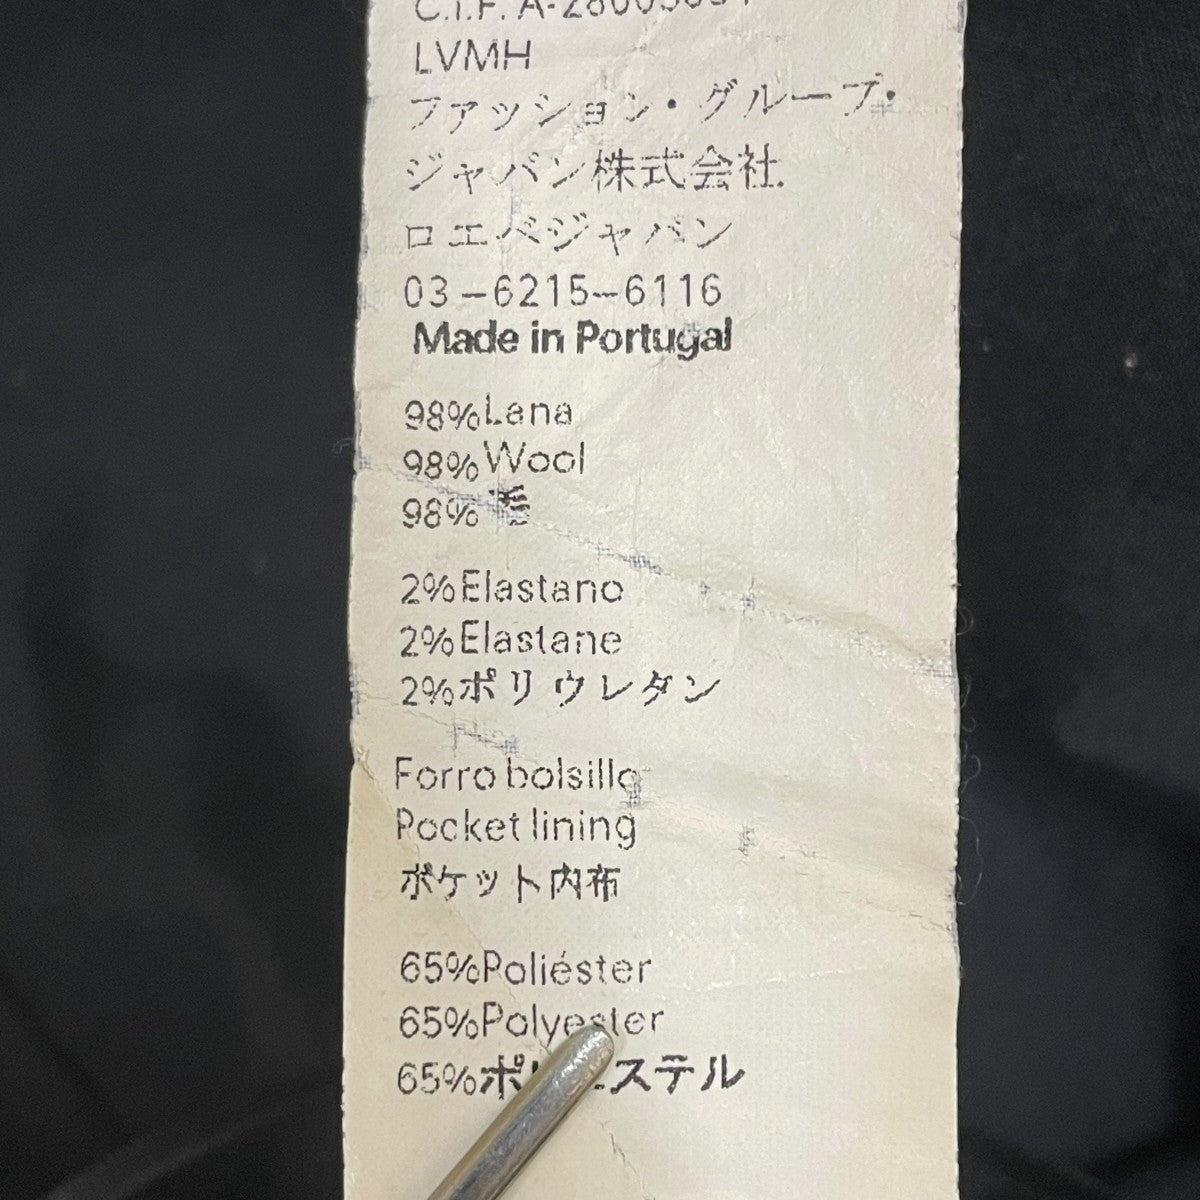 C.I.F. A-28003861
LVMH
ファッション・グループ・
ジャパン株式会社
ロエベジャパン
03-6215-6116
Made in Portugal
98%Lana
98%Wool
98%毛
2%Elastano
2%Elastane
2%ポリウレタン
Forro bolsillo
Pocket lining
ポケット内布
65%Poliéster
65%Polyester
65%ポリエステル